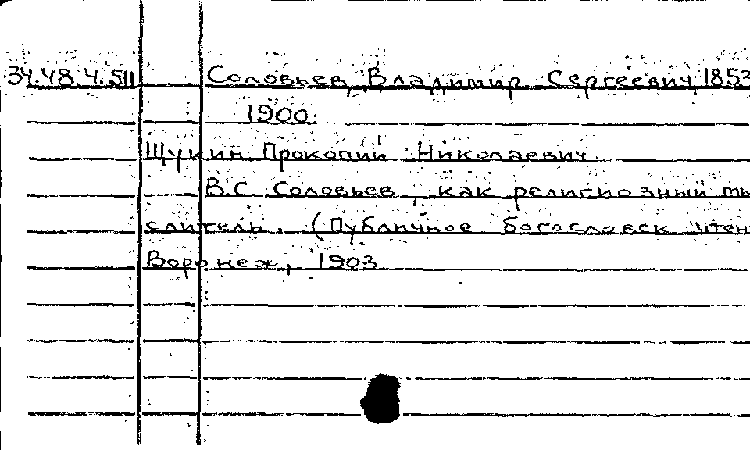 34.48.4.511 Соловьев, Владимир Сергеевич, 1853
1900.
Щукин Прокопий Николаевич.
В.С. Соловьев, как религиозный мы
слитель. (Публичное богословск. чтен
Воронеж, 1903